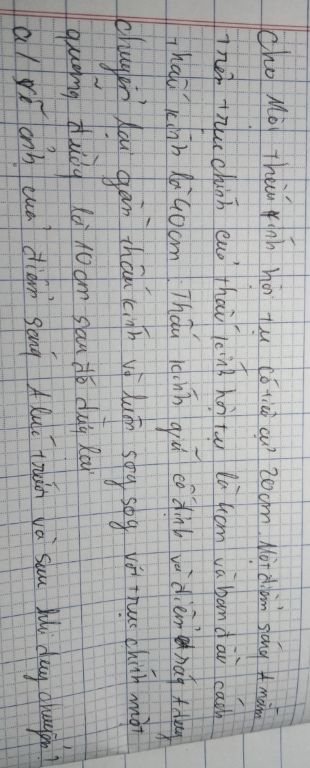 Cho một thấu kính hội tụ có tiêu cự 20cm. Một điểm sáng A nằm
trên trục chính của thấu kính hội tụ là 4cm và ban đầu cách
thấu kính là 40cm. Thấu kính giữ cố định và điểm sáng A duy
chuyển lại gần thấu kính và luôn song song với trục chính một
quãng đường là 10cm sau đó dừng lại
a/ vẽ ảnh của điểm sáng A lúc trước và sau khi duy chuyển?